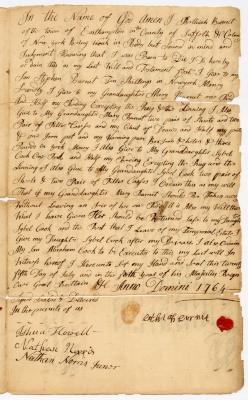 In the Name of God Amen I Mehitabil Burnit
of the town of Easthampton in County of Suffolk & Colony
of New york being weak in Body but Sound in mind and
Judgment Knowing that I was Born to Die I Do hereby
ordain this as my Last will and Testament First I Give to my
Son Stephen Burnit Ten Shillings in Newyork Money
Secondly I Give to my Grandaughter Mary Burnit one Bed
And Half my Cloaing Excepting the Rugg & the Linning I Also
Give to My Grandaughter Mary Burnit two pair of Sheets and two
Pair of Pillow Cases and my Chest of Draws and Half my puter
& one Iron pot and my warming pan
Pounds in york Money I Also Give to My Grandaughter Sybel
Cook One Bed and Half my Cloaing Excepting the Rug and the
Linning I also Give to My Grandaughter Sybel Cook two pair of
Sheets & two Pair of Pillow Cases I Ordain this as my will
That if my Grandaughter Mary Burnit Should Die
Without Leaving an Heir of her own Then it is My Will that
What I have Given Her Should be Returned Safe to my Grandaughter
Sybel Cook and the Rest that I Leave of my Temporal Estate I
Give my Daughter Sybel Cook after my Decease I also Ordain
My Son Abraham Cook to be Executor to this my Last will In
Witness hereof I Hereunto Set my Hand and Seal this twenty
fifth Day of July and in the forth year of his Majesties Reign
over Great Brittain &c Anno Domini 1764
Signed Sealed & Delivered
In the presents of us
Burnit
Howell
Nathan Norris
Nathan Norris Junor